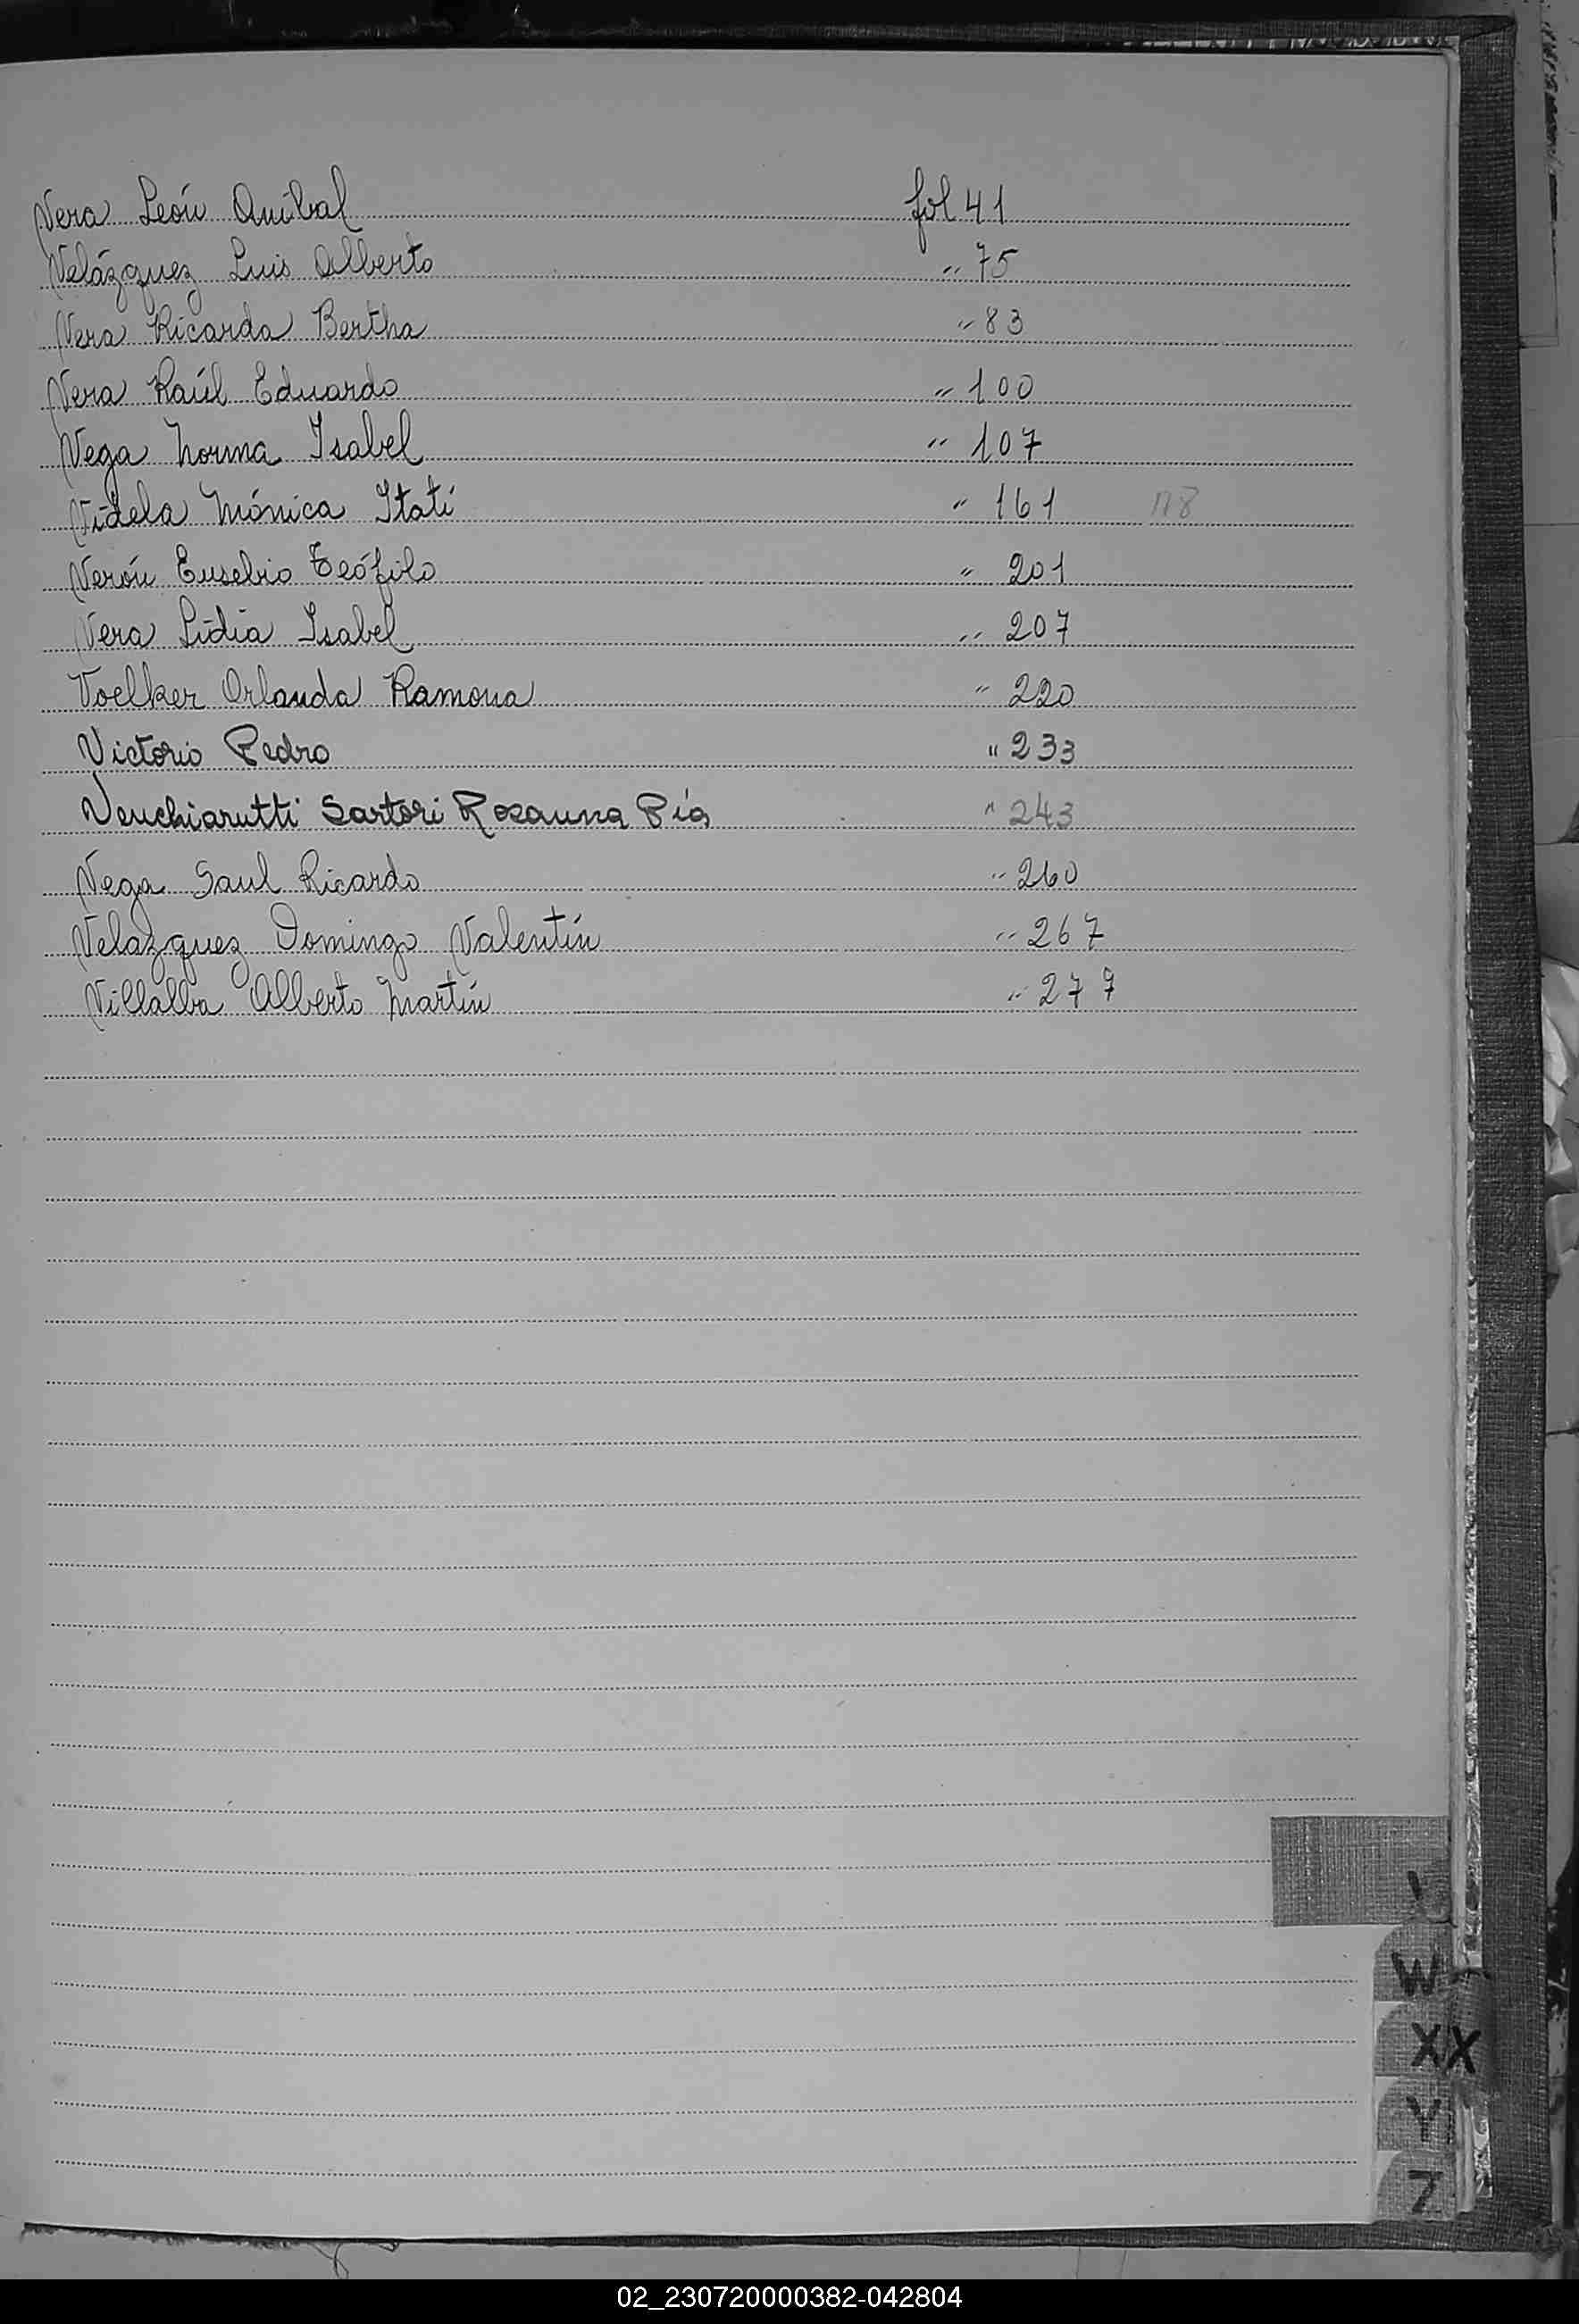 Vera León Anibal fol 41
Velázquez Luis Alberto " 75
Vera Ricarda Bertha " 83
Vera Raúl Eduardo " 100
Vega Norma Isabel " 107
Videla Mónica Itatí " 161
Verón Eusebio Teófilo " 201
Vera Lidia Isabel " 207
Voelker Orlanda Ramona " 220
Victorio Pedro " 233
Venchiarutti Sartori Rosanna Pía " 243
Vega Saul Ricardo " 260
Velazquez Domingo Valentín " 267
Villalba Alberto Martín " 277
W
XX
Y
Z
02_230720000382-042804